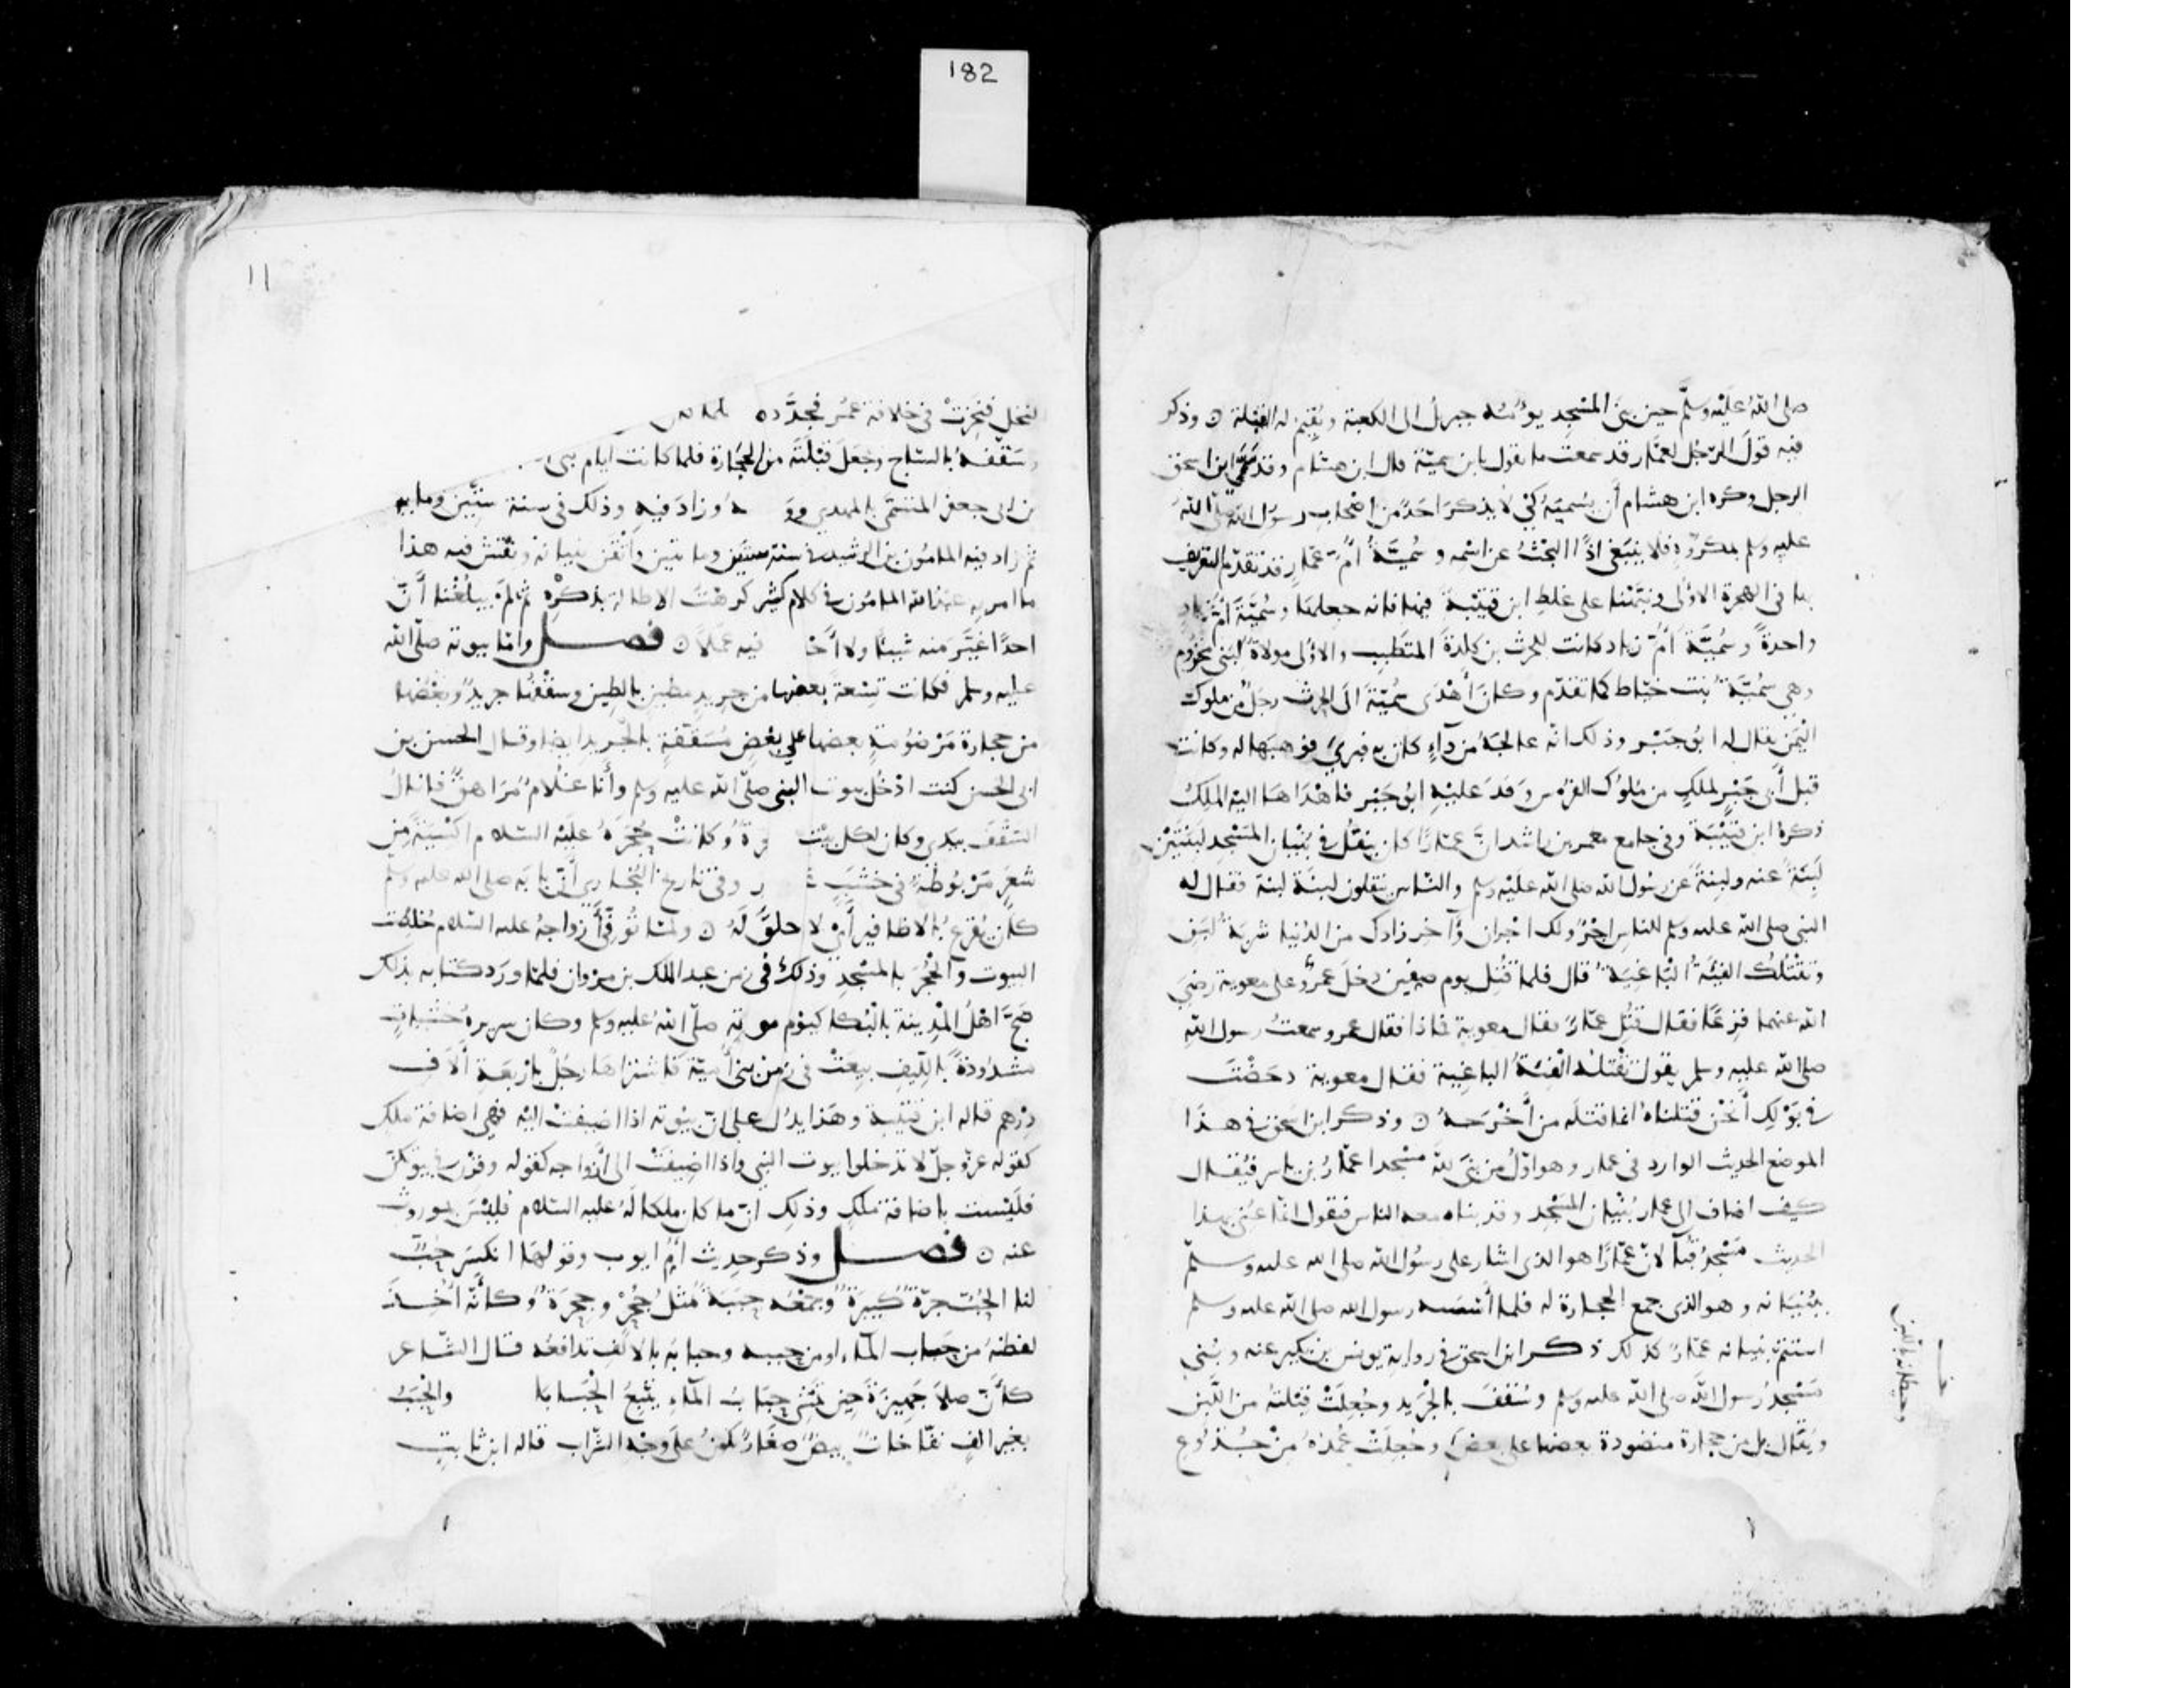 182
صلى اللهُ عَلَيْه وسلَّم حين بنى المسْجِد يؤمُّه جبريلُ الى الكعبة ويُقيم له القبلة ٥ وذكر
فيه قولَ الرّجُل لعمَّار قد سمعت ما تقول يا بن سميّة قال ابن هشام وقد سَمَّى ابن اسحق
الرجل وكره ابن هشام أن يُسميَهُ كَىْ لا يذكرَ احَدٌ من اصْحاب رسُول الله صَلّى اللهُ
عليه وسلم بمكروهٍ فلا ينبَغى اذًا البحْثُ عن اسْمه وسُميَّةُ امُّ عمّار قد تقدّم التعريف
بها فى الهجرة الاوُلى ونبّهْنا على غلطِ ابن قتَيْبة فيها فانه جعلها وسُميَّةَ امَّ زياد
واحدةً وسُميَّةُ امُّ زياد كانت للحرث بن كلدةَ المتطبِب والاوُلى مولاةٌ لبَنى مخزُوم
وهى سُميَّةُ بنت خبّاط كما تقدّم وكان أهْدَى سُميّةَ الى الحرث رجلٌ من ملوك
اليْمن يقال له ابو جَبْر وذلك انّه عالجَهُ من دآءٍ كان به فبرئَ فوهبَها له وكانت
قبل أبى جَبْرٍ لملكٍ من مُلوُك الفرُس وَفَدَ عليْهِ ابُو جَبْر فاهْدَاها اليْه الملكُ
ذكرهُ ابن قتَيْبَة وفى جامع معمر بن راشد انَّ عمّارًا كان ينقُلُ فى بُنْيان المَسْجد لبَنَتيْن
لَبِنَةً عنه ولبِنةً عن رسُول الله صلى الله علَيْه وسلم والنّاس يَنقلون لبنَةً لبنة فقال له
النبى صلى الله عليه وسلم للناسِ اجْرٌ ولك اجْران وآخر زادك من الدُنيا شربةُ لبَنٍ
وتقْتُلُك الفئةُ الْباغيَة قال فلما قُتِل يوم صفين دخلَ عمْروٌ على معوية رضِىَ
الله عنهما فزِعًا فقال قُتِل عمّارٌ فقال معوية فماذا فقال عمرو سمعتُ رسول اللهِ
صلى الله عليه وسلم يقول تقْتلهُ الْفئةُ الباغِية فقال معوية دحَضْتَ
فى بَوْلِك أنَحْن قتلناهُ انما قتلَه من أخْرَجهُ ٥ وذكر ابن اسحق فى هذَا
الموضع الحديث الوارد فى عمار وهو اوّلُ من بنَى للهِ مسْجدا عمّارُ بن ياسر فيُقال
كيف اضاف الى عمار بُنْيان المَسْجد وقد بناه معه الناس فنقول انّما عنى بهذا
الحديث مَسْجدَ قُبآ لانّ عمّارًا هو الذى اشار على رسُول اللهِ صلى الله عليه وسلم
ببُنْيانه وهو الذى جمع الحجارة له فلما أسّسه رسول الله صلى الله عليه وسلم
استتمّ بنيانه عمّارٌ كذلك ذكر ابن اسحق فى رواية يونس بن بُكَير عنه وبُنى
مَسْجِدُ رسول اللهِ صلى الله عليه وسلم وسُقفَ بالجْرَيد وجُعِلَتْ قبْلتهُ من اللَّبن
ويُقال بل من حجارة منضودة بعضها على بعضٍ وجُعِلَتْ عُمدُهُ منْ جُذوُع
وحيطانه باللبن
١١
النخل فنخِرتْ فى خلافة عمُر فجدَّدها
وسَقّفهُ بالسّاج وجَعَل قبْلتَه من الحِجَارة فلما كانت ايام بنى
بن ابى جعفر المتسَمّى بالمهدى وزادَ فيهِ وذلك فى سنة ستّين ومايه
ثم زاد فيه المامُون بن الرشيد فى سنة ستين ومايتين وأتْقن بنيانهُ ونقَش فيه هذا
ما امر به عبد الله المامُون فى كلام كثير كرهْتُ الاطالة بذكرْه ثم لمَ يبلُغْنا أنَّ
احدًا غيَّر منه شيئًا ولا فيه عَمَلًا ٥ فصــل وامّا بيوته صلّى الله
عليه وسلم فكانت تِسْعةً بعضها من جريدٍ مطيَّن بالطين وسقْفُها جريدٌ وبَعْضُها
من حجارة مَرْضوُمةٍ بعضها على بعْضٍ مُسَقّفةٍ بالجريد ايضا وقال الحسن بن
ابى الحسن كنت ادْخُل بيوت النبى صلّى الله عليه وسلم وأنا غلامٌ مُرَاهقٌ فانالُ
السّقْفَ بيدى وكان لكل بيْت وكانتْ حُجَرهُ علَيْه السّلام اكْسيَةً مِن
شَعَرٍ مَرْبُوطَةً فى خشَبِ وفى تاريخ البُخارى أنّ بابَه صلى الله عليه وسلم
كان يُقرَع بالاظافير أىْ لا حلَقَ لَهُ ٥ ولمّا تُوفّىَ أزواجُهُ عليه السّلام خُلطت
البيوت والْحُجَر بالمسْجدِ وذلك فى زمن عبد الملك بن مرْوان فلمّا ورَد كتابه بذلك
ضجَّ اهْلُ المْدينة بالبُكا كيَوْم موته صلّى اللهُ عليه وسلم وكان سريره خشباتٍ
مشدُودةً بالليف بيعتْ فى زمن بنى أميّة فاشترَاها رجُلٌ بارْبعَة الَاف
درْهم قاله ابن قتيْبة وهَذا يدُل على انّ بيُوته اذا اضيفتْ اليْه فهى اضافة ملكٍ
كقوله عزّ وجلّ لا تدخلوا بيوت النبى واذا اضِيفتْ الى أزواجه كقوله وقرْن فى بيوتكنّ
فلَيْست باضافة ملكٍ وذلك انّ ما كان ملكا لهُ عليه السّلام فليْسَ بموروثٍ
عنه ٥ فصــل وذكر حديث امِّ ايوب وقولهَا انكسَر حُبٌّ
لنا الحُبّ جرّةٌ كَبيرَةٌ وجمْعُه حِبَبَة مثل جُحْر وجِحَرَة وكأنّه اخُذ
لفظهُ من حَباب المآء او من حببه وحبابَه بالالفِ تدافعُه قال الشّاعر
كأنّ صلاَ جَهِيزَةَ حين تمْشى حَبَابُ المآءِ يَتْبعُ الْحَبَابا والْحَبَبُ
بغير الفٍ نفّاخاتٌ بيضٌ صغَارٌ تكونُ على وَجْه الشّراب قاله ابن ثابتٍ